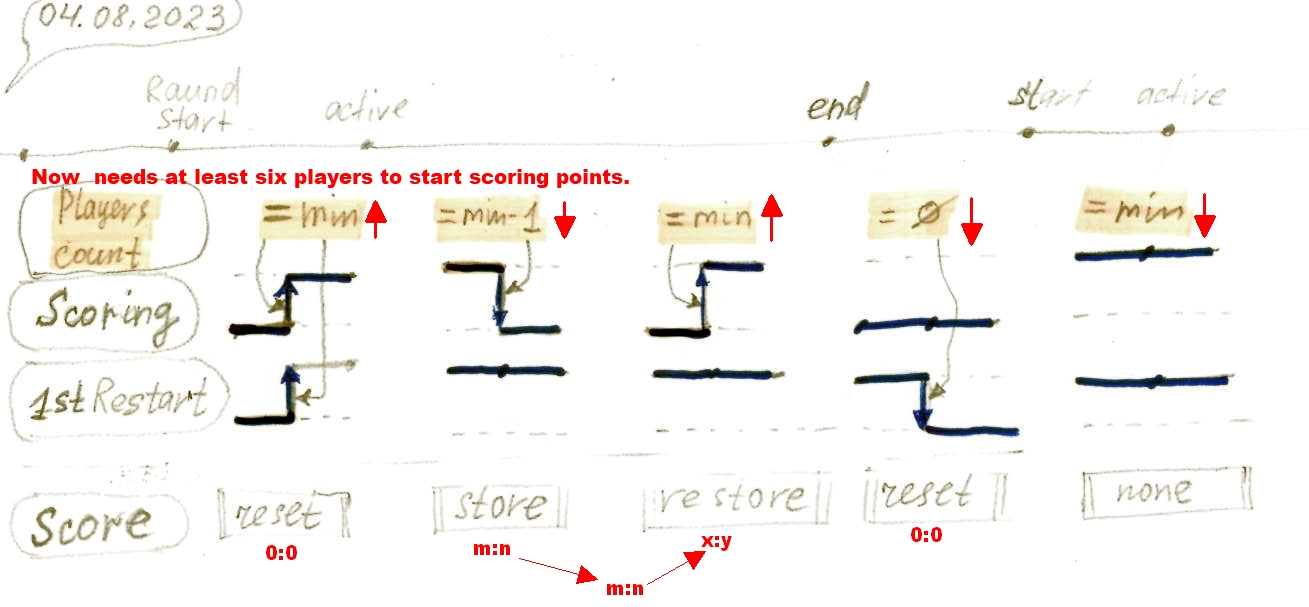 04.08.2023
Raund
start
active
end
start
active
Now needs at least six players to start scoring points.
Players
count
=min
=min-1
=min
=ø
=min
Scoring
1st Restart
Score
reset
store
restore
reset
none
0:0
m:n
m:n
x:y
0:0